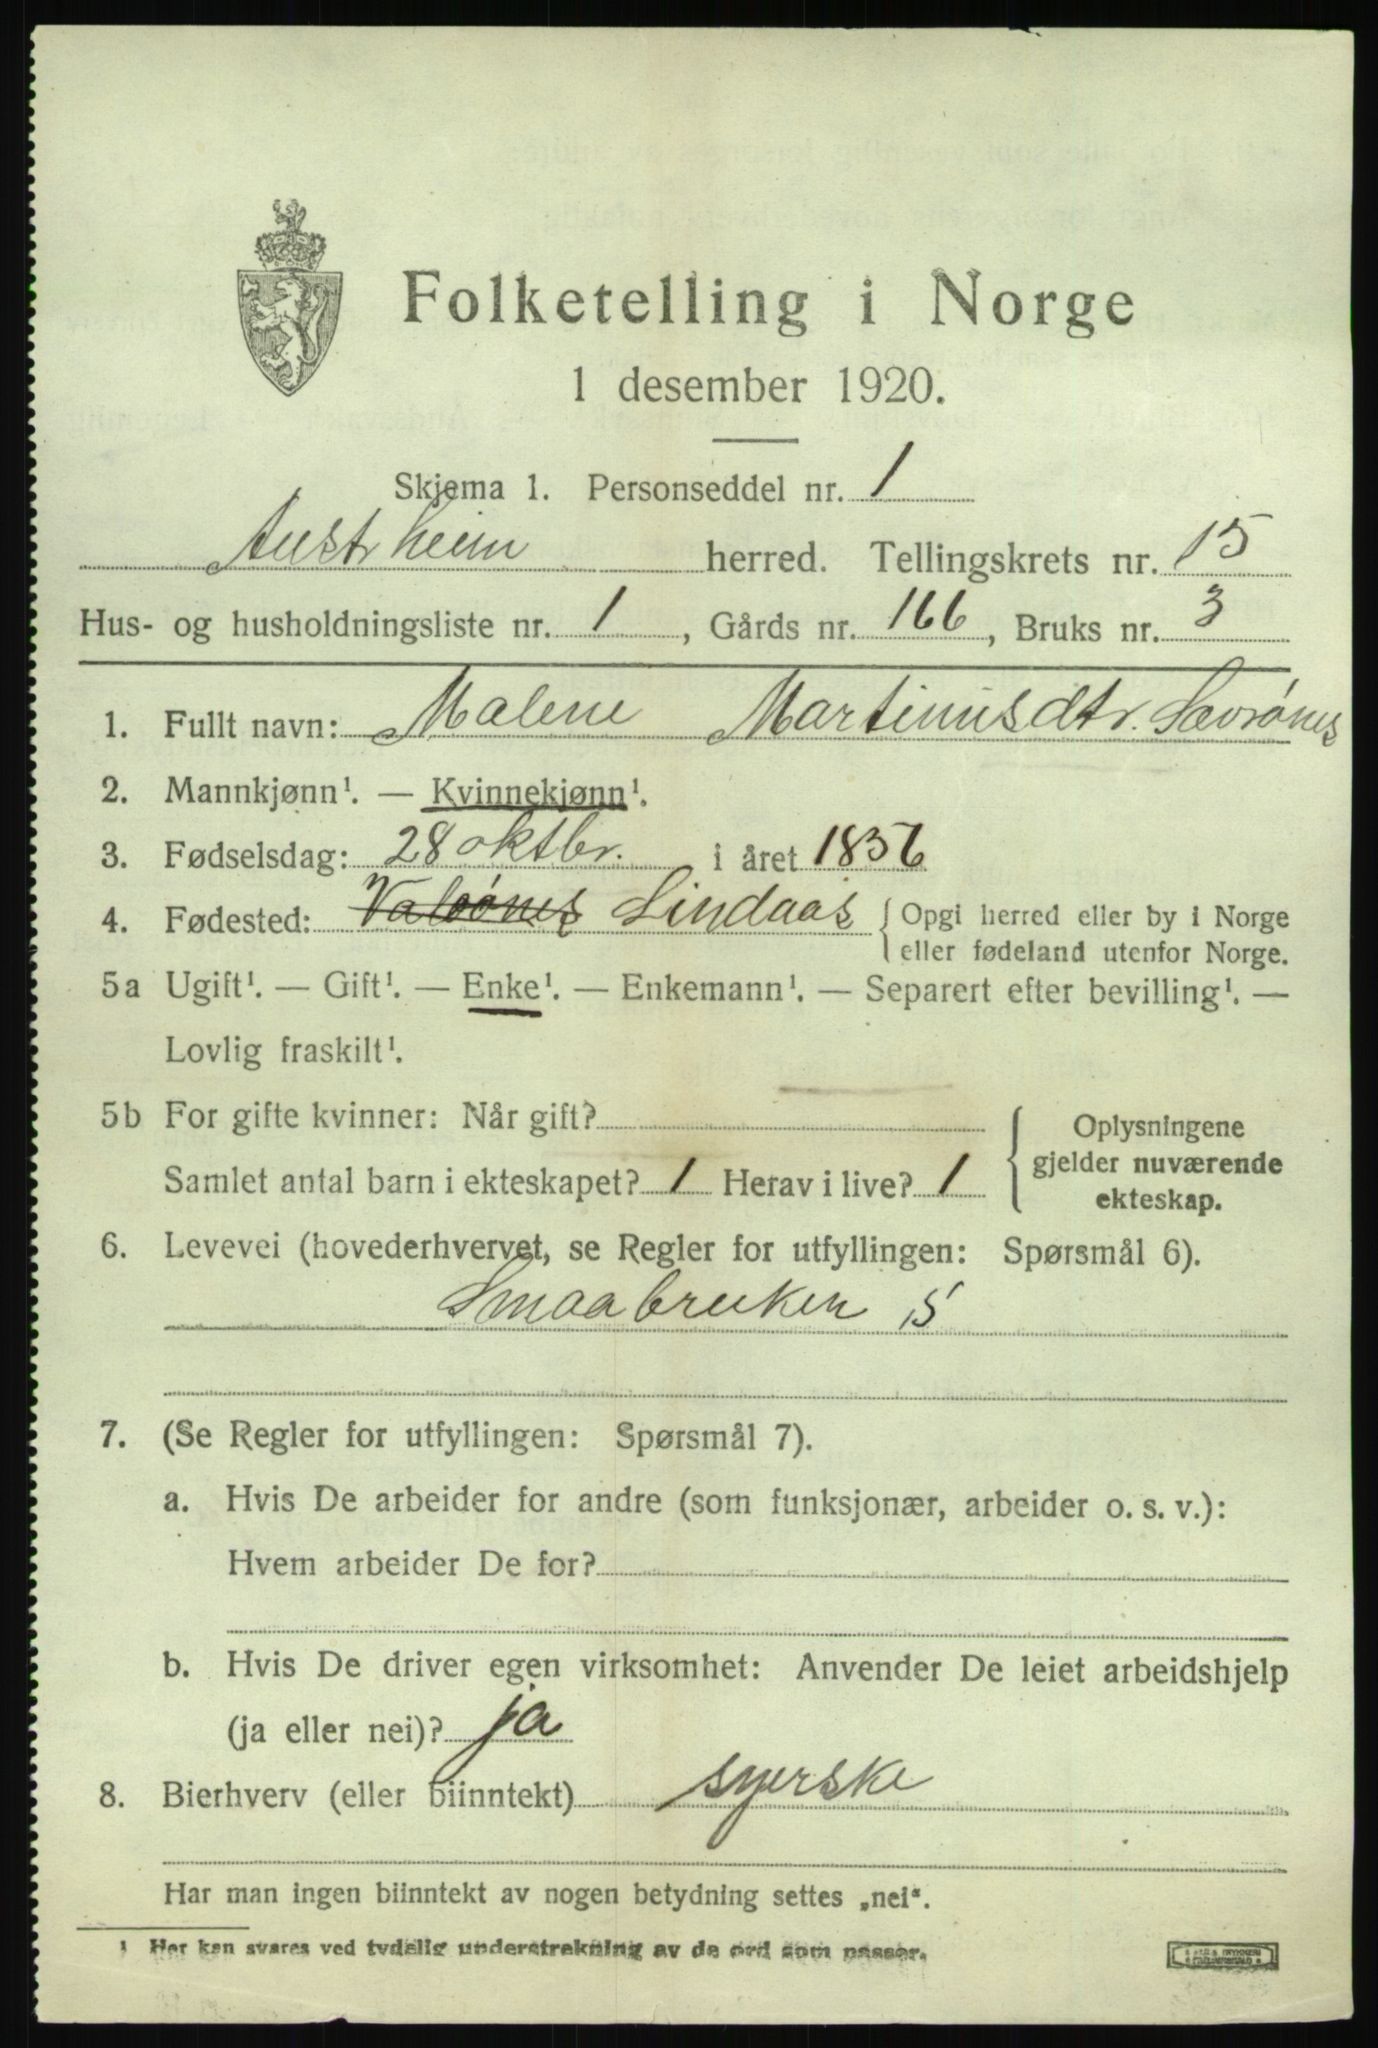 Folketelling i Norge
1 desember 1920.
Skjema 1. Personseddel nr. 1
Austrheim herred. Tellingskrets nr. 15
Hus- og husholdningsliste nr. 1, Gårds nr. 166, Bruks nr. 3
1. Fullt navn: Malene Martinusdtr. Sævrønes
2. Mannkjønn¹. — Kvinnekjønn¹.
3. Fødselsdag: 28 oktbr. i året 1836
4. Fødested: Lindaas { Opgi herred eller by i Norge
eller fødeland utenfor Norge.
5a Ugift¹. — Gift¹. — Enke¹. — Enkemann¹. — Separert efter bevilling¹. —
Lovlig fraskilt¹.
5b For gifte kvinner: Når gift?
Samlet antal barn i ekteskapet? 1 Herav i live? 1
{ Oplysningene
gjelder nuværende
ekteskap.
6. Levevei (hovederhvervet, se Regler for utfyllingen: Spørsmål 6).
Smaabruker S
7. (Se Regler for utfyllingen: Spørsmål 7).
a. Hvis De arbeider for andre (som funksjonær, arbeider o. s. v.):
Hvem arbeider De for?
b. Hvis De driver egen virksomhet: Anvender De leiet arbeidshjelp
(ja eller nei)? ja
8. Bierhverv (eller biinntekt) syerske
Har man ingen biinntekt av nogen betydning settes „nei“.
¹ Her kan svares ved tydelig understrekning av de ord som passer.